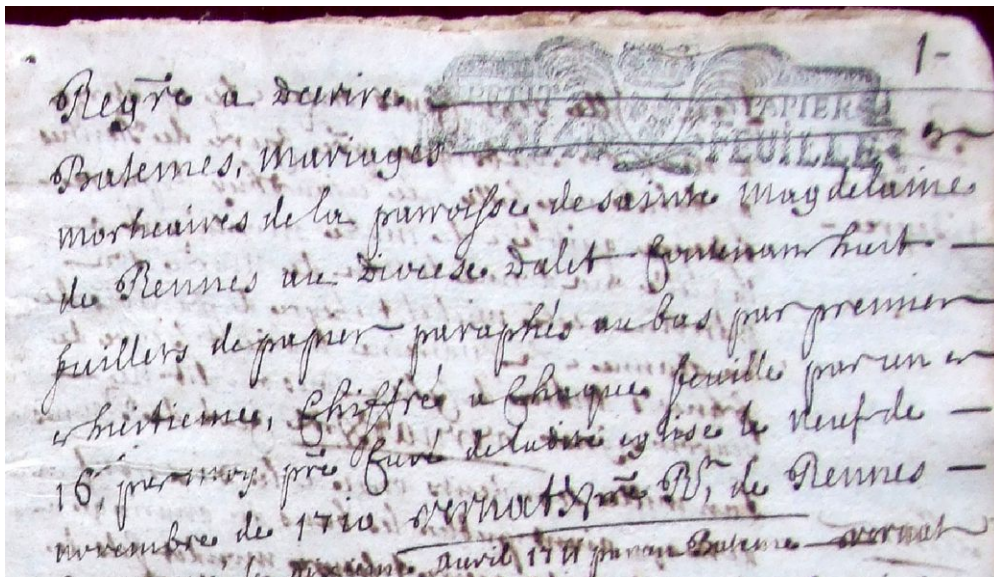 1-
PETIT PAPIER
FEUILLE
Regre a decrire
Batemes, mariages et
mortuaires de la parroisse de sainte magdelaine
de Rennes au diocese dalet Contenant huit
fuillets de papier paraphés au bas par premier
et huitieme, Chiffré a Chaque feuille par un et
16, par moy pre Curé de ladite eglise le neuf de
novembre de 1710 vernat pre Rr de Rennes
avril 1711 par un Bateme vernat